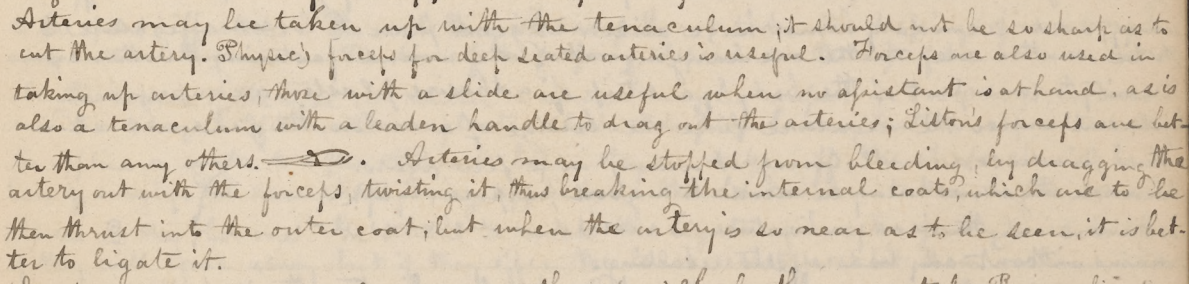 Arteries may be taken up with the tenaculum; it should not be so sharp as to
cut the artery. Physic's forceps for deep seated arteries is useful. Forceps are also used in
taking up arteries, those with a slide are useful when no assistant is at hand, as is
also a tenaculum with a leaden handle to drag out the arteries; Liston's forceps are bet-
ter than any others. Arteries may be stopped from bleeding, by dragging the
artery out with the forceps, twisting it, thus breaking the internal coats, which are to be
then thrust into the outer coat; but when the artery is so near as to be seen, it is bet-
ter to ligate it.